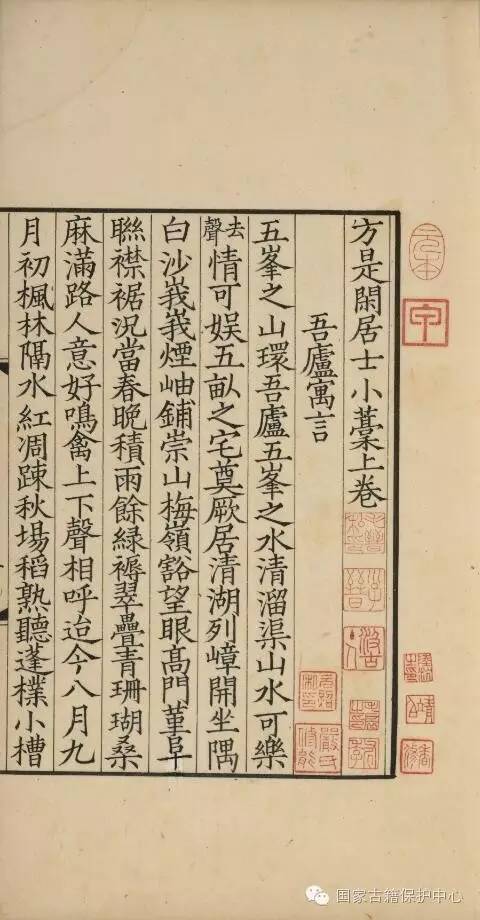 方是閑居士小藁上卷
吾廬寓言
五峯之山環吾廬五峯之水清溜渠山水可樂
去聲情可娱五畝之宅奠厥居清湖列嶂開坐隅
白沙峩峩煙岫鋪崇山梅嶺豁望眼髙門董阜
聯襟裾況當春晚積雨餘緑褥翠疊青珊瑚桑
麻滿路人意好鳴禽上下聲相呼迨今八月九
月初楓林隔水紅凋踈秋場稻熟聽蓬檏小槽
元本
嚴氏修能
国家古籍保护中心